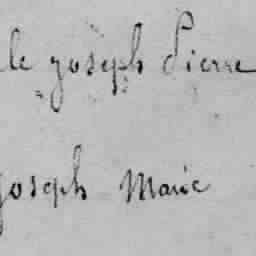 le joseph Pierre
joseph Marie